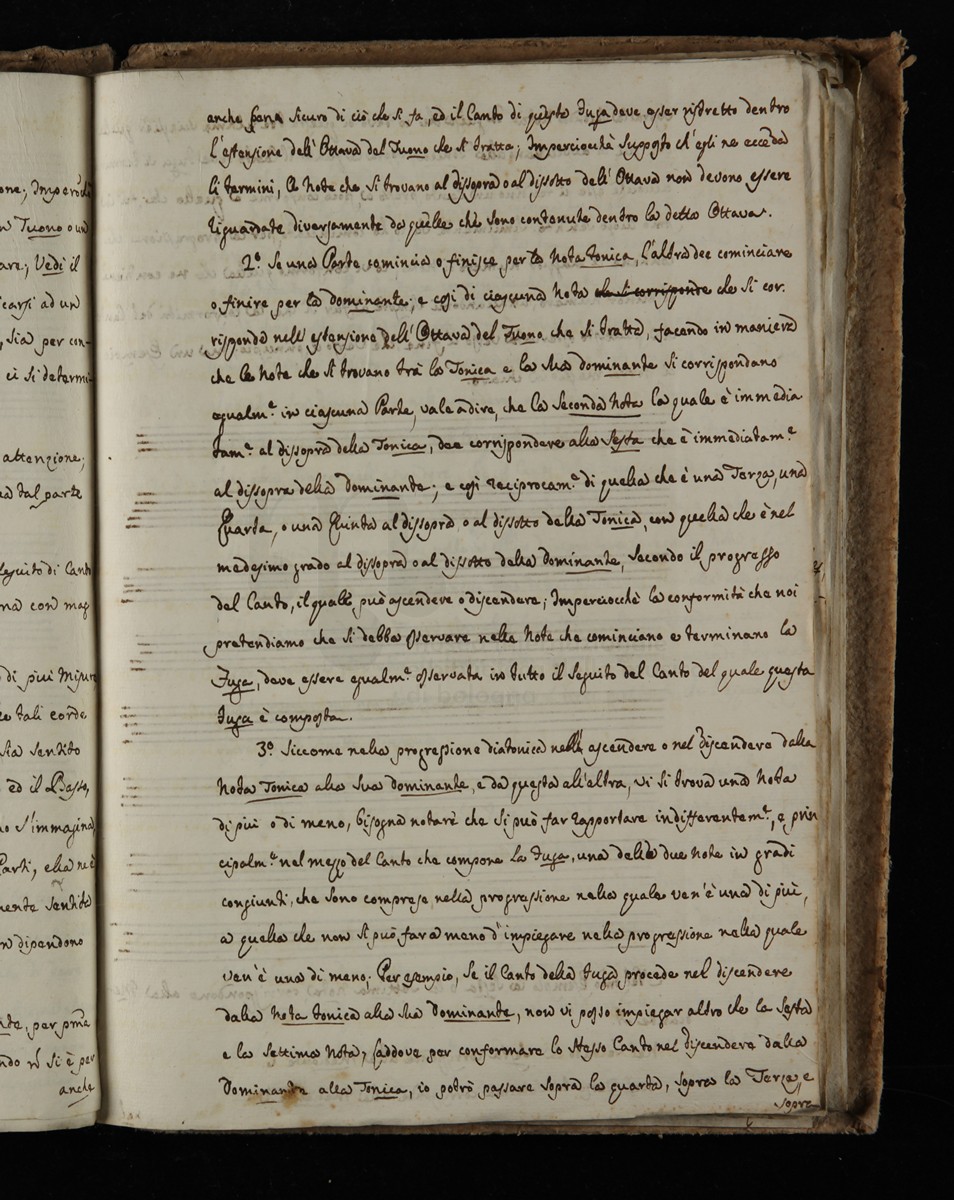 one; Imperocch
n Tuono o un
are; Vedi il
carsi ad un
, sia per con-
ci si determi
attenzione;
a tal parte
seguito di Cant
na con mag
di più Misur
e tali corde
sia sentito
ed il Basso,
no s'immagina
Parti, ella ne
mente sentita
n dipendono
nte, per prma
ndo si è per
anche
anche sicuro di ciò che si fa, ed il Canto di questa Fuga deve esser ristretto dentro
l'estensione dell'Ottava del Tuono che si tratta; Imperciocchè supposto ch'egli ne ecceda
li termini, le Note che si trovano al dissopra o al dissotto dell'Ottava non devono essere
riguardate diversamente da quelle che sono contenute dentro la detta Ottava.
2.º Se una Parte comincia o finisce per la Nota tonica, l'altra dee cominciare
o finire per la dominante; e così di ciascuna Nota che si corrisponde che si cor-
risponda nell'estensione dell'Ottava del Tuono che si tratta, facendo in maniera
che le Note che si trovano trà la Tonica e la sua dominante si corrispondano
egualm.e in ciascuna Parte, vale a dire, che la Seconda Nota la quale è immedia
tam.e al dissopra della Tonica, dee corrispondere alla Sesta che è immediatam.e
al dissopra della Dominante; e così reciprocam.e di quella che è una Terza, una
Quarta, o una Quinta al dissopra o al dissotto della Tonica, con quella che è nel
medesimo grado al dissopra o al dissotto della Dominante, secondo il progresso
del Canto, il quale può ascendere o discendere; Imperciocchè la conformità che noi
pretendiamo che si debba osservare nelle Note che cominciano e terminano la
Fuga, deve essere egualm.e osservata in tutto il seguito del Canto del quale questa
Fuga è composta.
3.º Siccome nella progressione diatonica nell' ascendere o nel discendere dalla
Nota Tonica alla sua Dominante, e da questa all'altra, vi si trova una Nota
di più o di meno, bisogna notare che si può far rapportare indifferentem.e, e prin
cipalm.e nel mezzo del Canto che compone la Fuga, una delle due Note in gradi
congiunti, che sono comprese nella progressione nella quale ven'è una di più,
a quella che non si può fare a meno d'impiegare nella progressione nella quale
ven'è una di meno; Per esempio, se il Canto della Fuga procede nel discendere
dalla Nota tonica alla sua Dominante, non vi posso impiegar altro che la Sesta
e la Settima Nota, laddove per conformare lo stesso Canto nel discendere dalla
Dominante alla Tonica, io potrò passare sopra la quarta, sopra la Terza, e
sopra